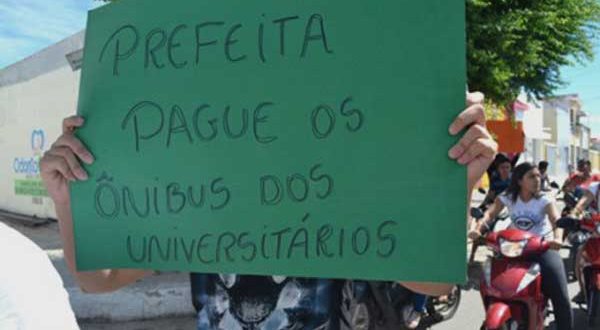 PREFEITA
PAGUE OS
ÔNIBUS DOS
UNIVERSITÁRIOS